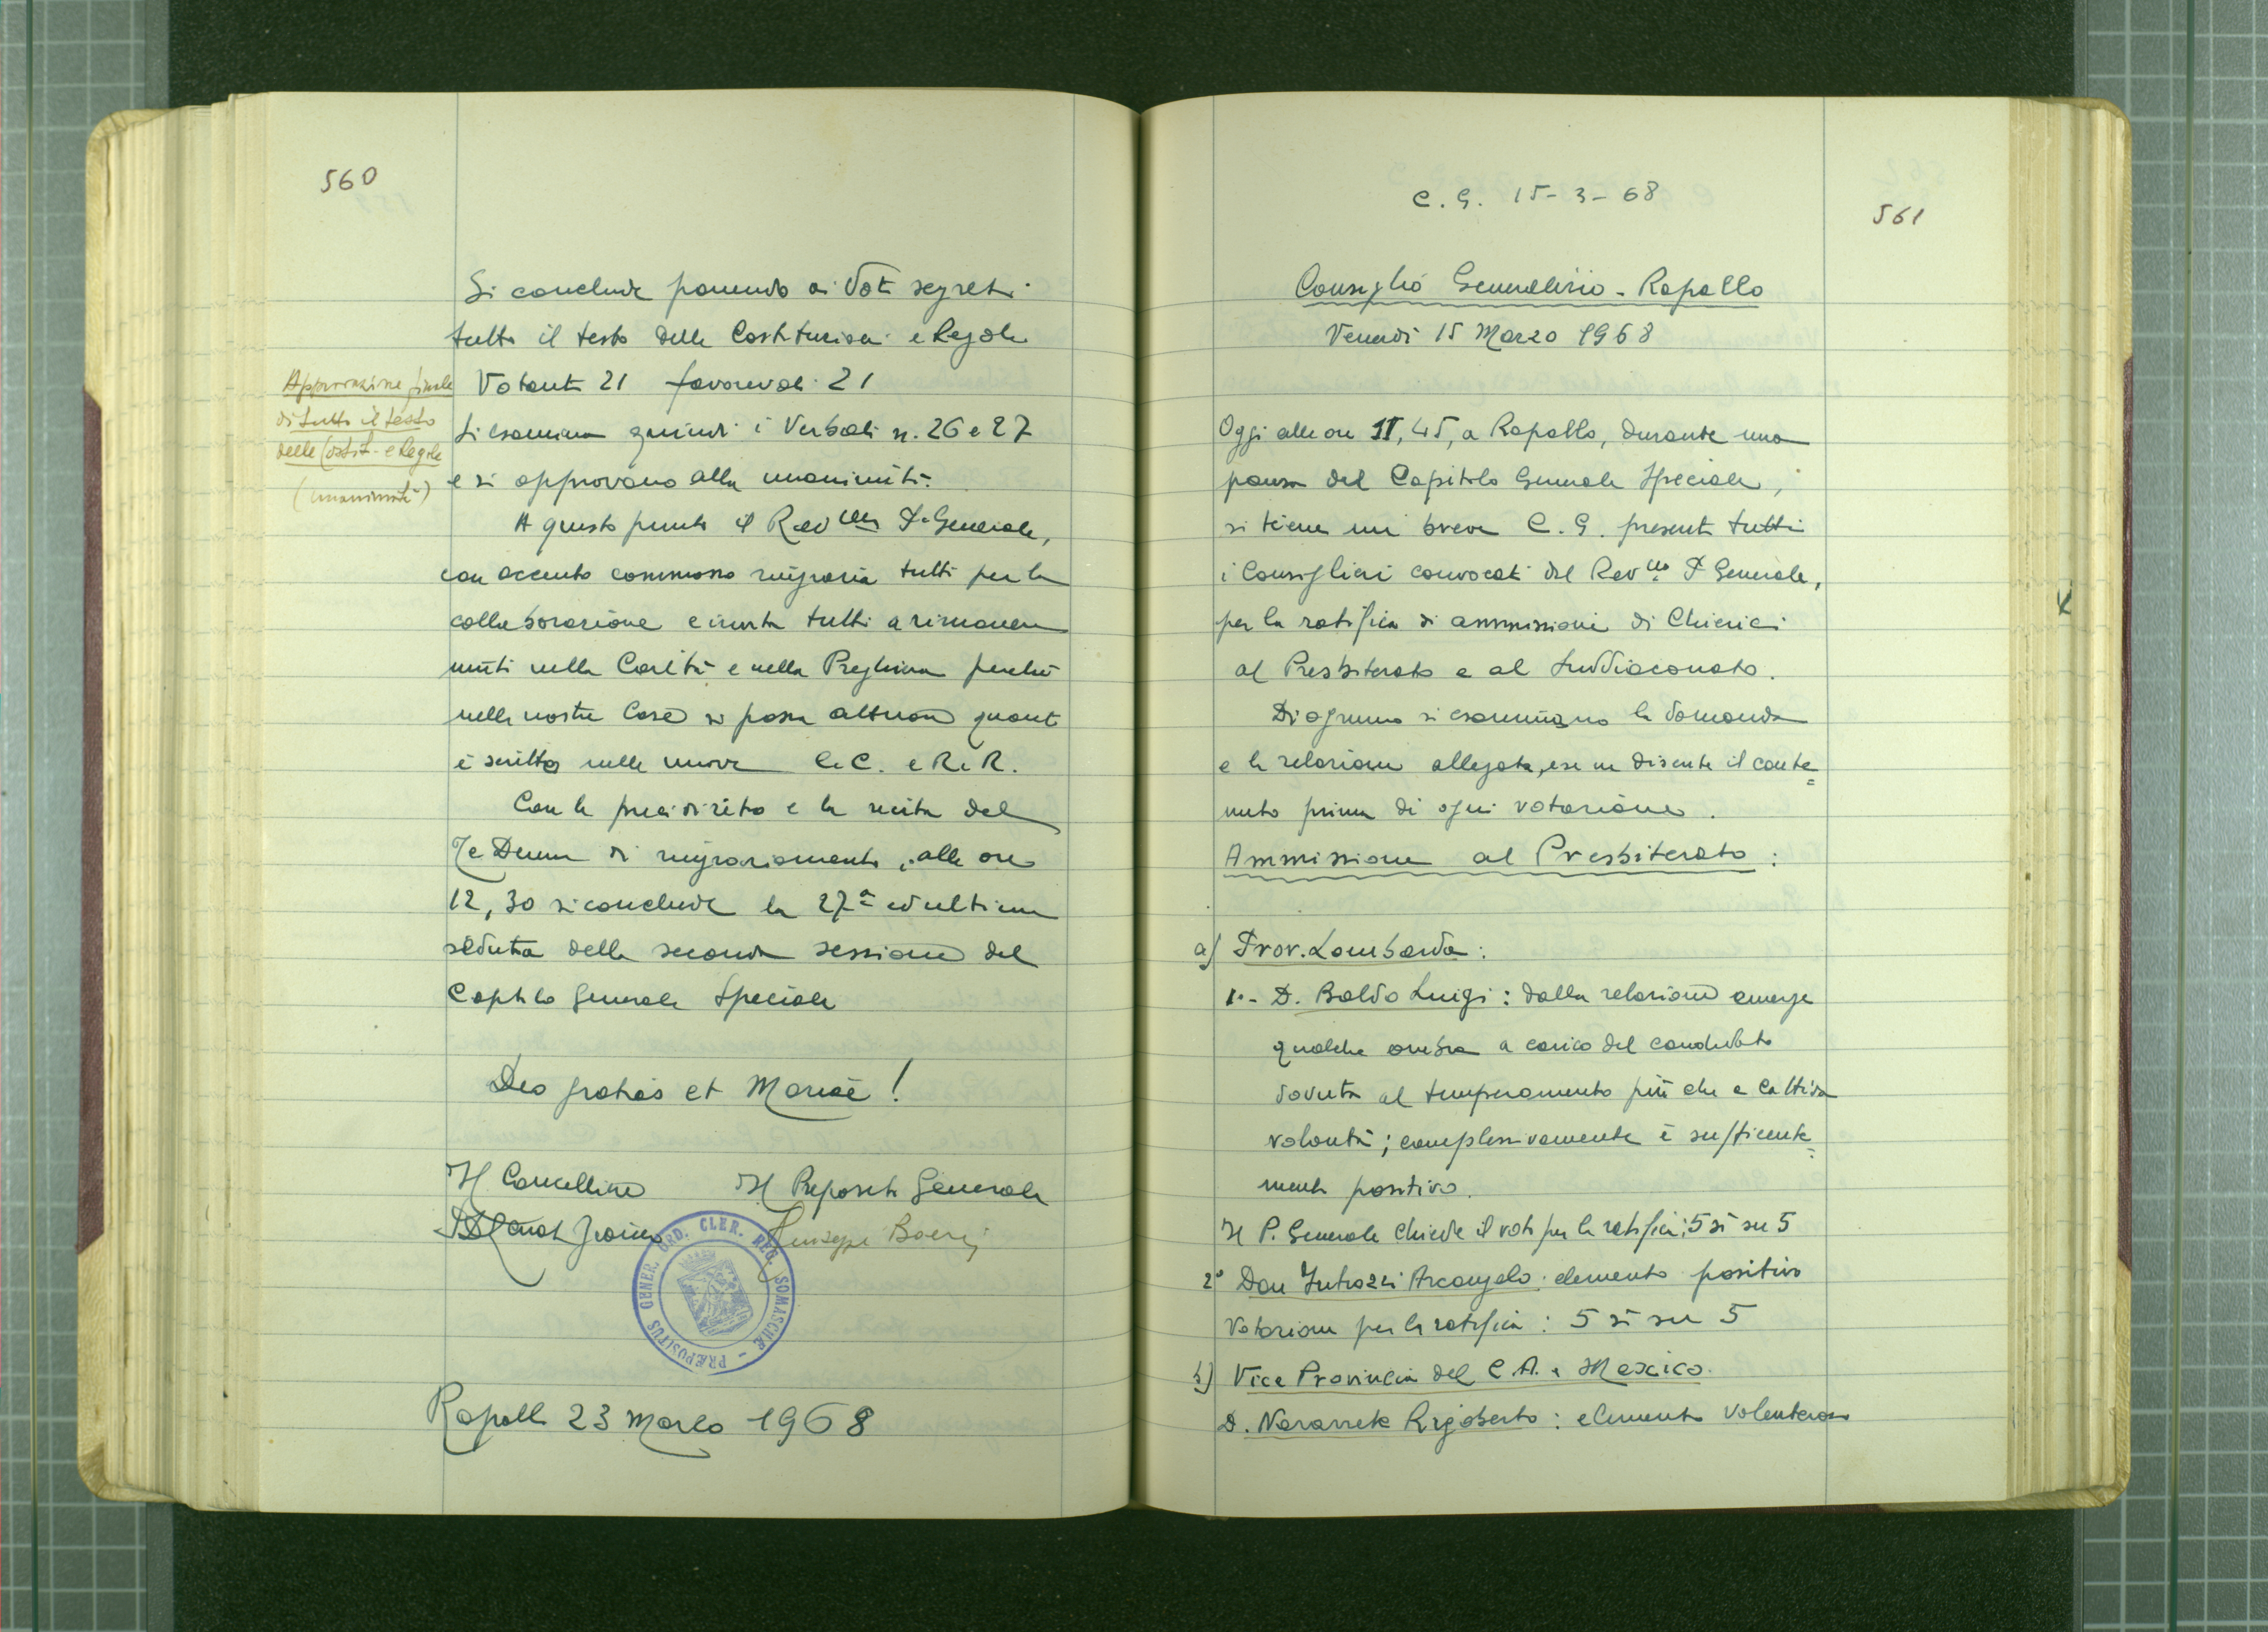 560
Si conclude ponendo ai Voti segreti
tutto il testo delle Costituzioni e Regole
Votanti 21 favorevoli 21
Approvazione finale
di tutto il testo
delle Costit. e Regole
(unanimità)
Si esamina quindi i Verbali n. 26 e 27
e si approvano alla unanimità.
A questo punto il Rev.mo P. Generale,
con accento commosso ringrazia tutti per la
collaborazione e invita tutti a rimanere
uniti nella Carità e nella Preghiera perché
nelle nostre Case si possa attuare quanto
è scritto nelle nuove CC. e RR.
Con le preci di rito e la recita del
Te Deum di ringraziamento, alle ore
12,30 si conclude la 27ª ed ultima
seduta della seconda sessione del
Capitolo Generale Speciale
Deo gratias et Mariae!
Il Cancelliere Il Preposito Generale
Giuseppe Boeris
PRÆPOSITUS GENER. ORD. CLER. REG. SOMASCHÆ
Rapallo 23 Marzo 1968
C. G. 15-3-68
561
Consiglio Generalizio - Rapallo
Venerdì 15 Marzo 1968
Oggi alle ore 11,45, a Rapallo, durante una
pausa del Capitolo Generale Speciale,
si tiene un breve C. G. presenti tutti
i Consiglieri convocati dal Rev.mo P. Generale,
per la ratifica di ammissioni di Chierici
al Presbiterato e al Suddiaconato.
Di ognuno si esaminano la domanda
e le relazioni allegate, e se ne discute il conte=
nuto prima di ogni votazione.
Ammissione al Presbiterato:
a) Prov. Lombarda:
1.- D. Baldo Luigi: dalla relazione emerge
qualche ombra a carico del candidato
dovuta al temperamento più che a cattiva
volontà; complessivamente è sufficiente=
mente positivo.
Il P. Generale chiede il voto per la ratifica: 5 sì su 5
2° Don Introzzi Arcangelo: elemento positivo
Votazione per la ratifica: 5 sì su 5
b) Vice Provincia del C.A. e Mexico.
D. Navarrete Rigoberto: elemento volenteroso